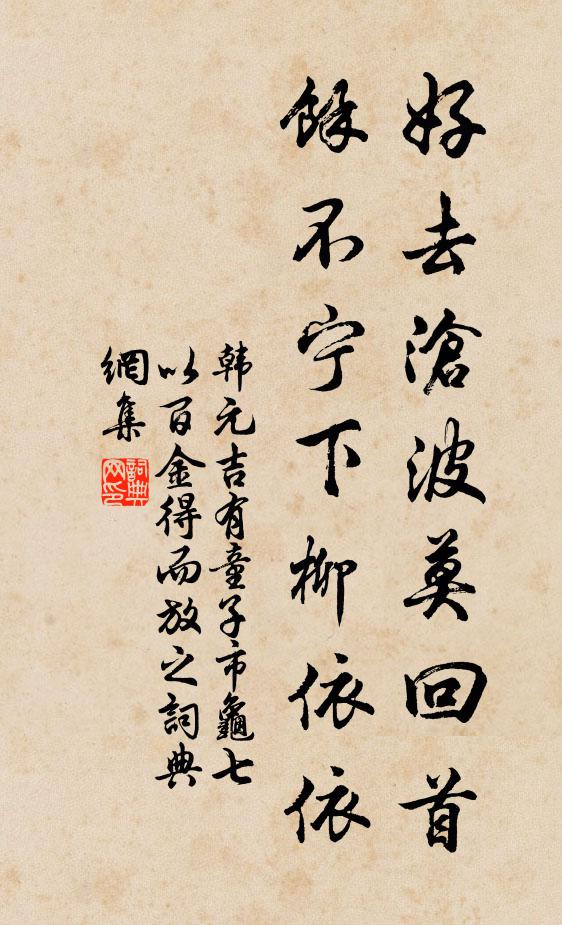 好去滄波莫回首
餘不宁下柳依依
韩元吉有童子市龜七
以百金得而放之詞典
網集
詞典网印